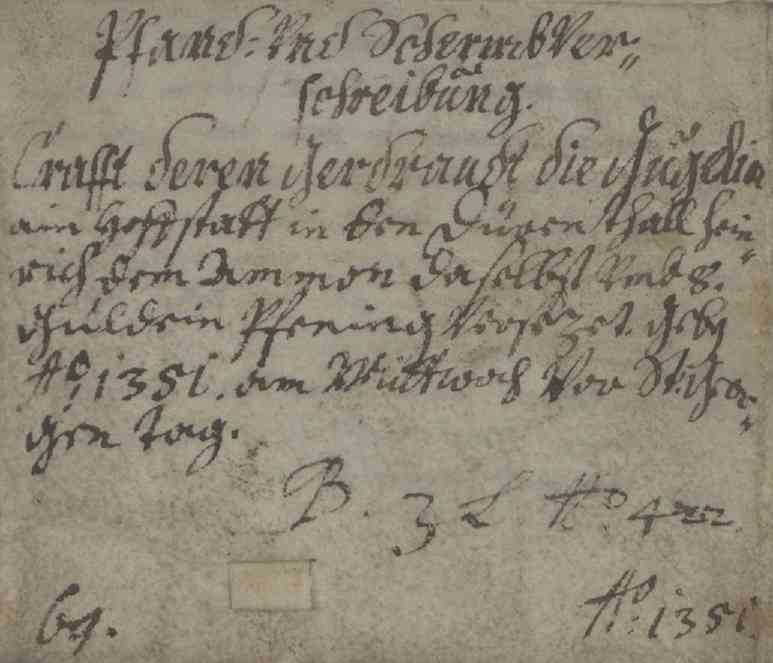 Pfand- Vnd SchermbVer„
schreibung.
Crafft deren Gerdraudt die Güglin
ain Hoffstatt in ben Düren thall Hein„
rich dem Ammon daselbst Vmb 8.
Guldein Pfening Versezet. Gebn
Aō. 1351. am Mittwoch Vor St. Geor„
gen Tag.
B. 3 L
69.
Aō. 1351.